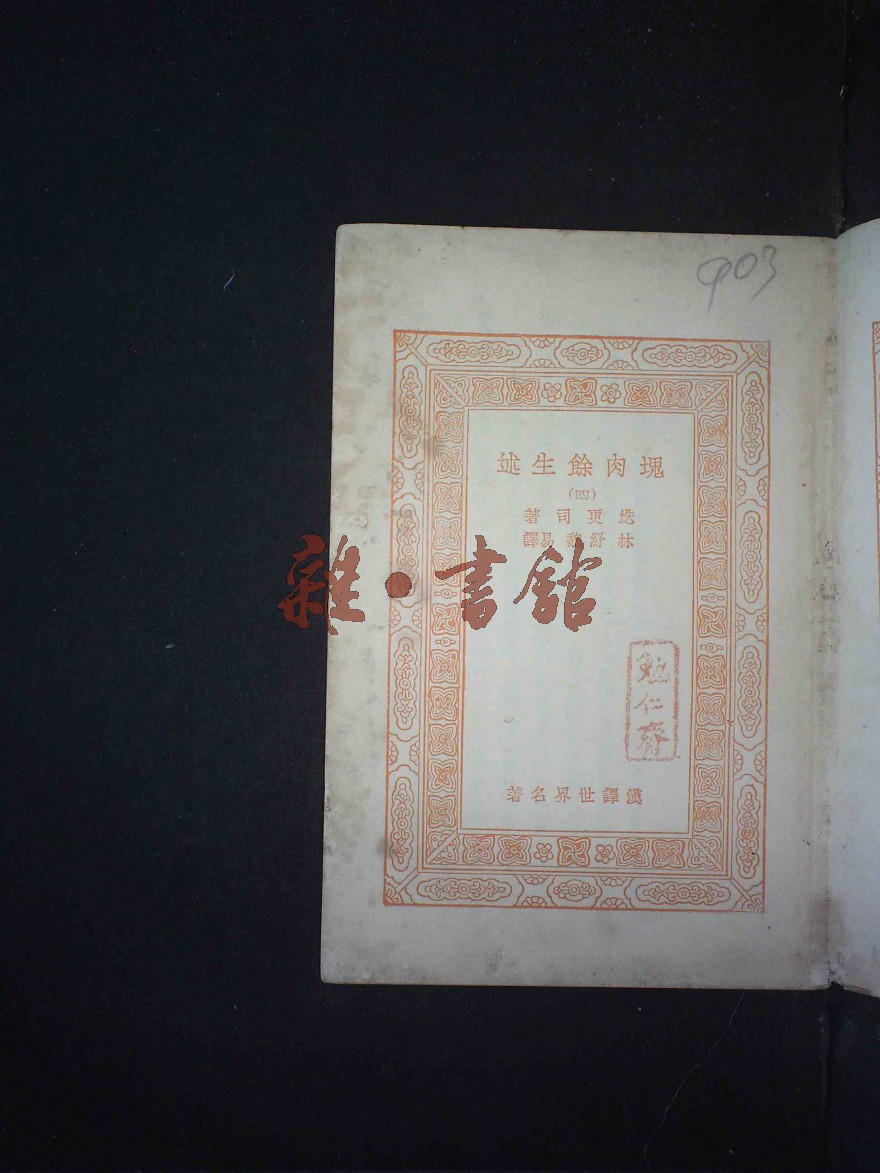 903
塊肉餘生述
(四)
迭更司著
林紓魏易譯
雜·書館
勉仁齋
漢譯世界名著